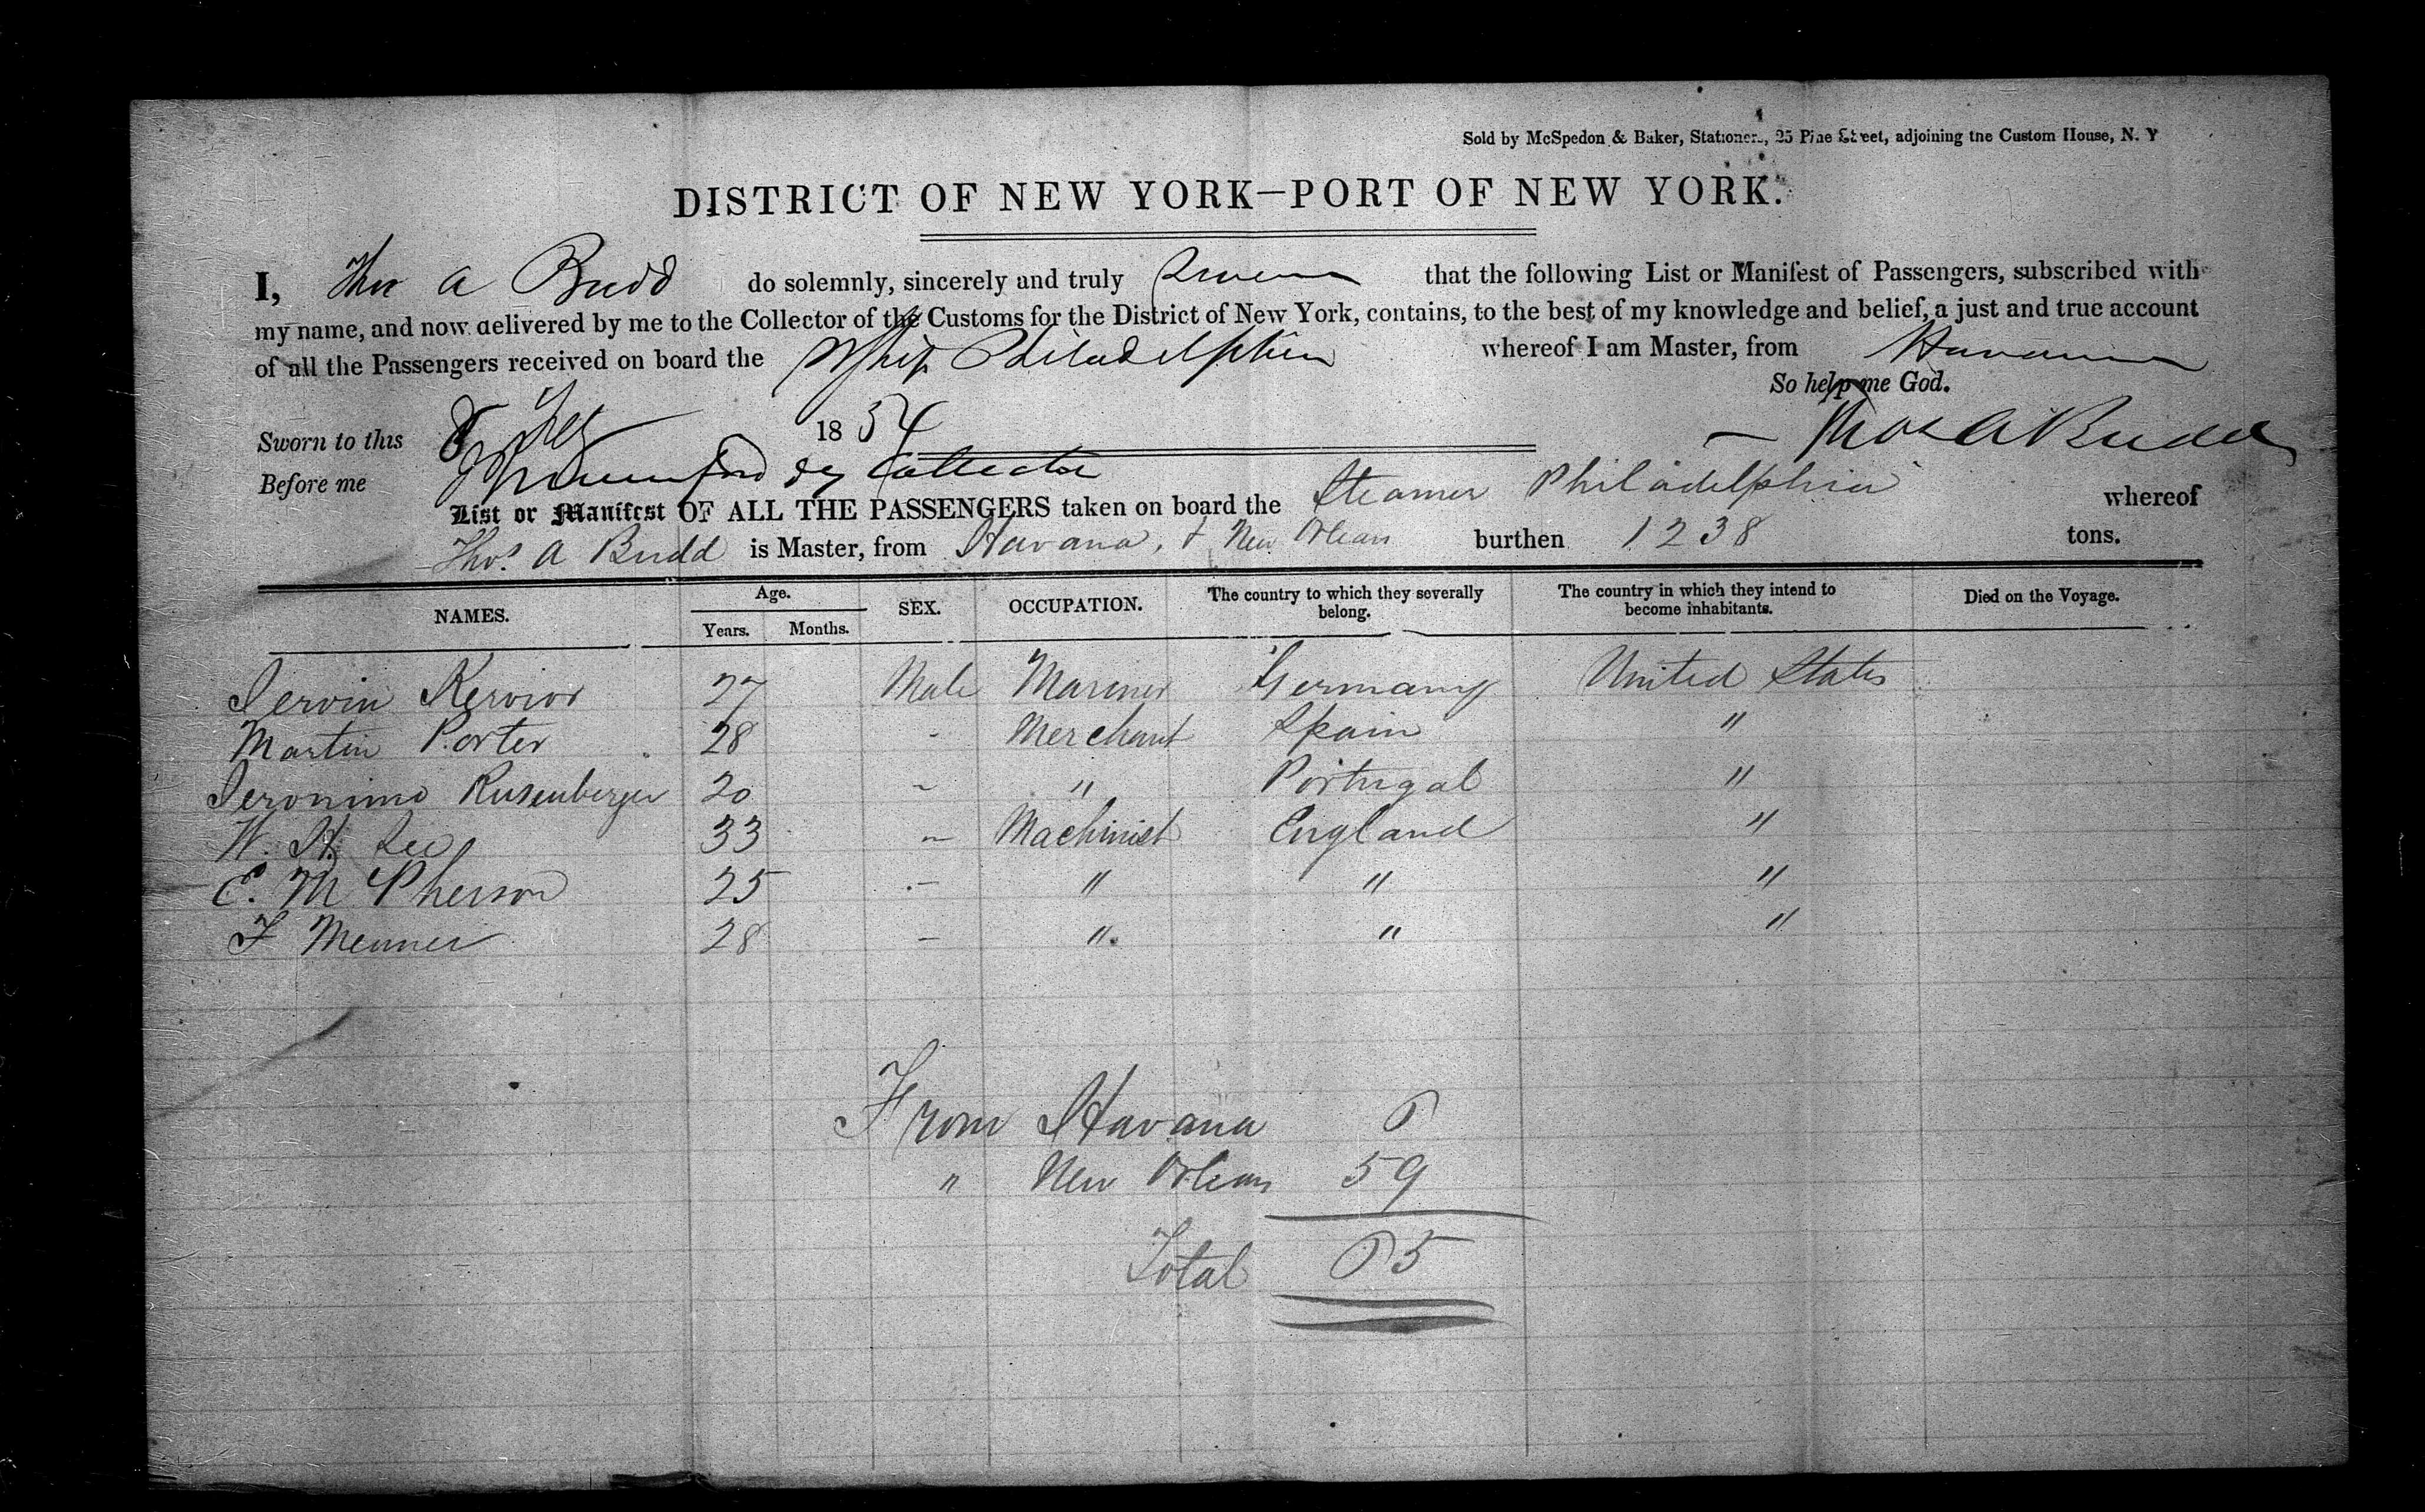 Sold by McSpedon & Baker, Stationers, 25 Pine Street, adjoining the Custom House, N. Y
DISTRICT OF NEW YORK—PORT OF NEW YORK.
I, Thos A Budd do solemnly, sincerely and truly Swear that the following List or Manifest of Passengers, subscribed with
my name, and now delivered by me to the Collector of the Customs for the District of New York, contains, to the best of my knowledge and belief, a just and true account
of all the Passengers received on board the Philadelphia whereof I am Master, from Havana
So help me God.
Sworn to this 8 Feb 1854 Thos A Budd
Before me Dy Collector
List or Manifest OF ALL THE PASSENGERS taken on board the Steamer Philadelphia whereof
Thos. A Budd is Master, from Havana, & New Orleans burthen 1238 tons.
NAMES. Age. Years. Months. SEX. OCCUPATION. The country to which they severally belong. The country in which they intend to become inhabitants. Died on the Voyage.
27 Male Mariner Germany United States
Martin Porter 28 - Merchant Spain "
Jeronimo Rusenberger 20 - " Portugal "
W. H. Lee 33 - Machinist England "
E. M Pherson 25 - " " "
F Menner 28 - " " "
From Havana 6
" New Orleans 59
Total 65